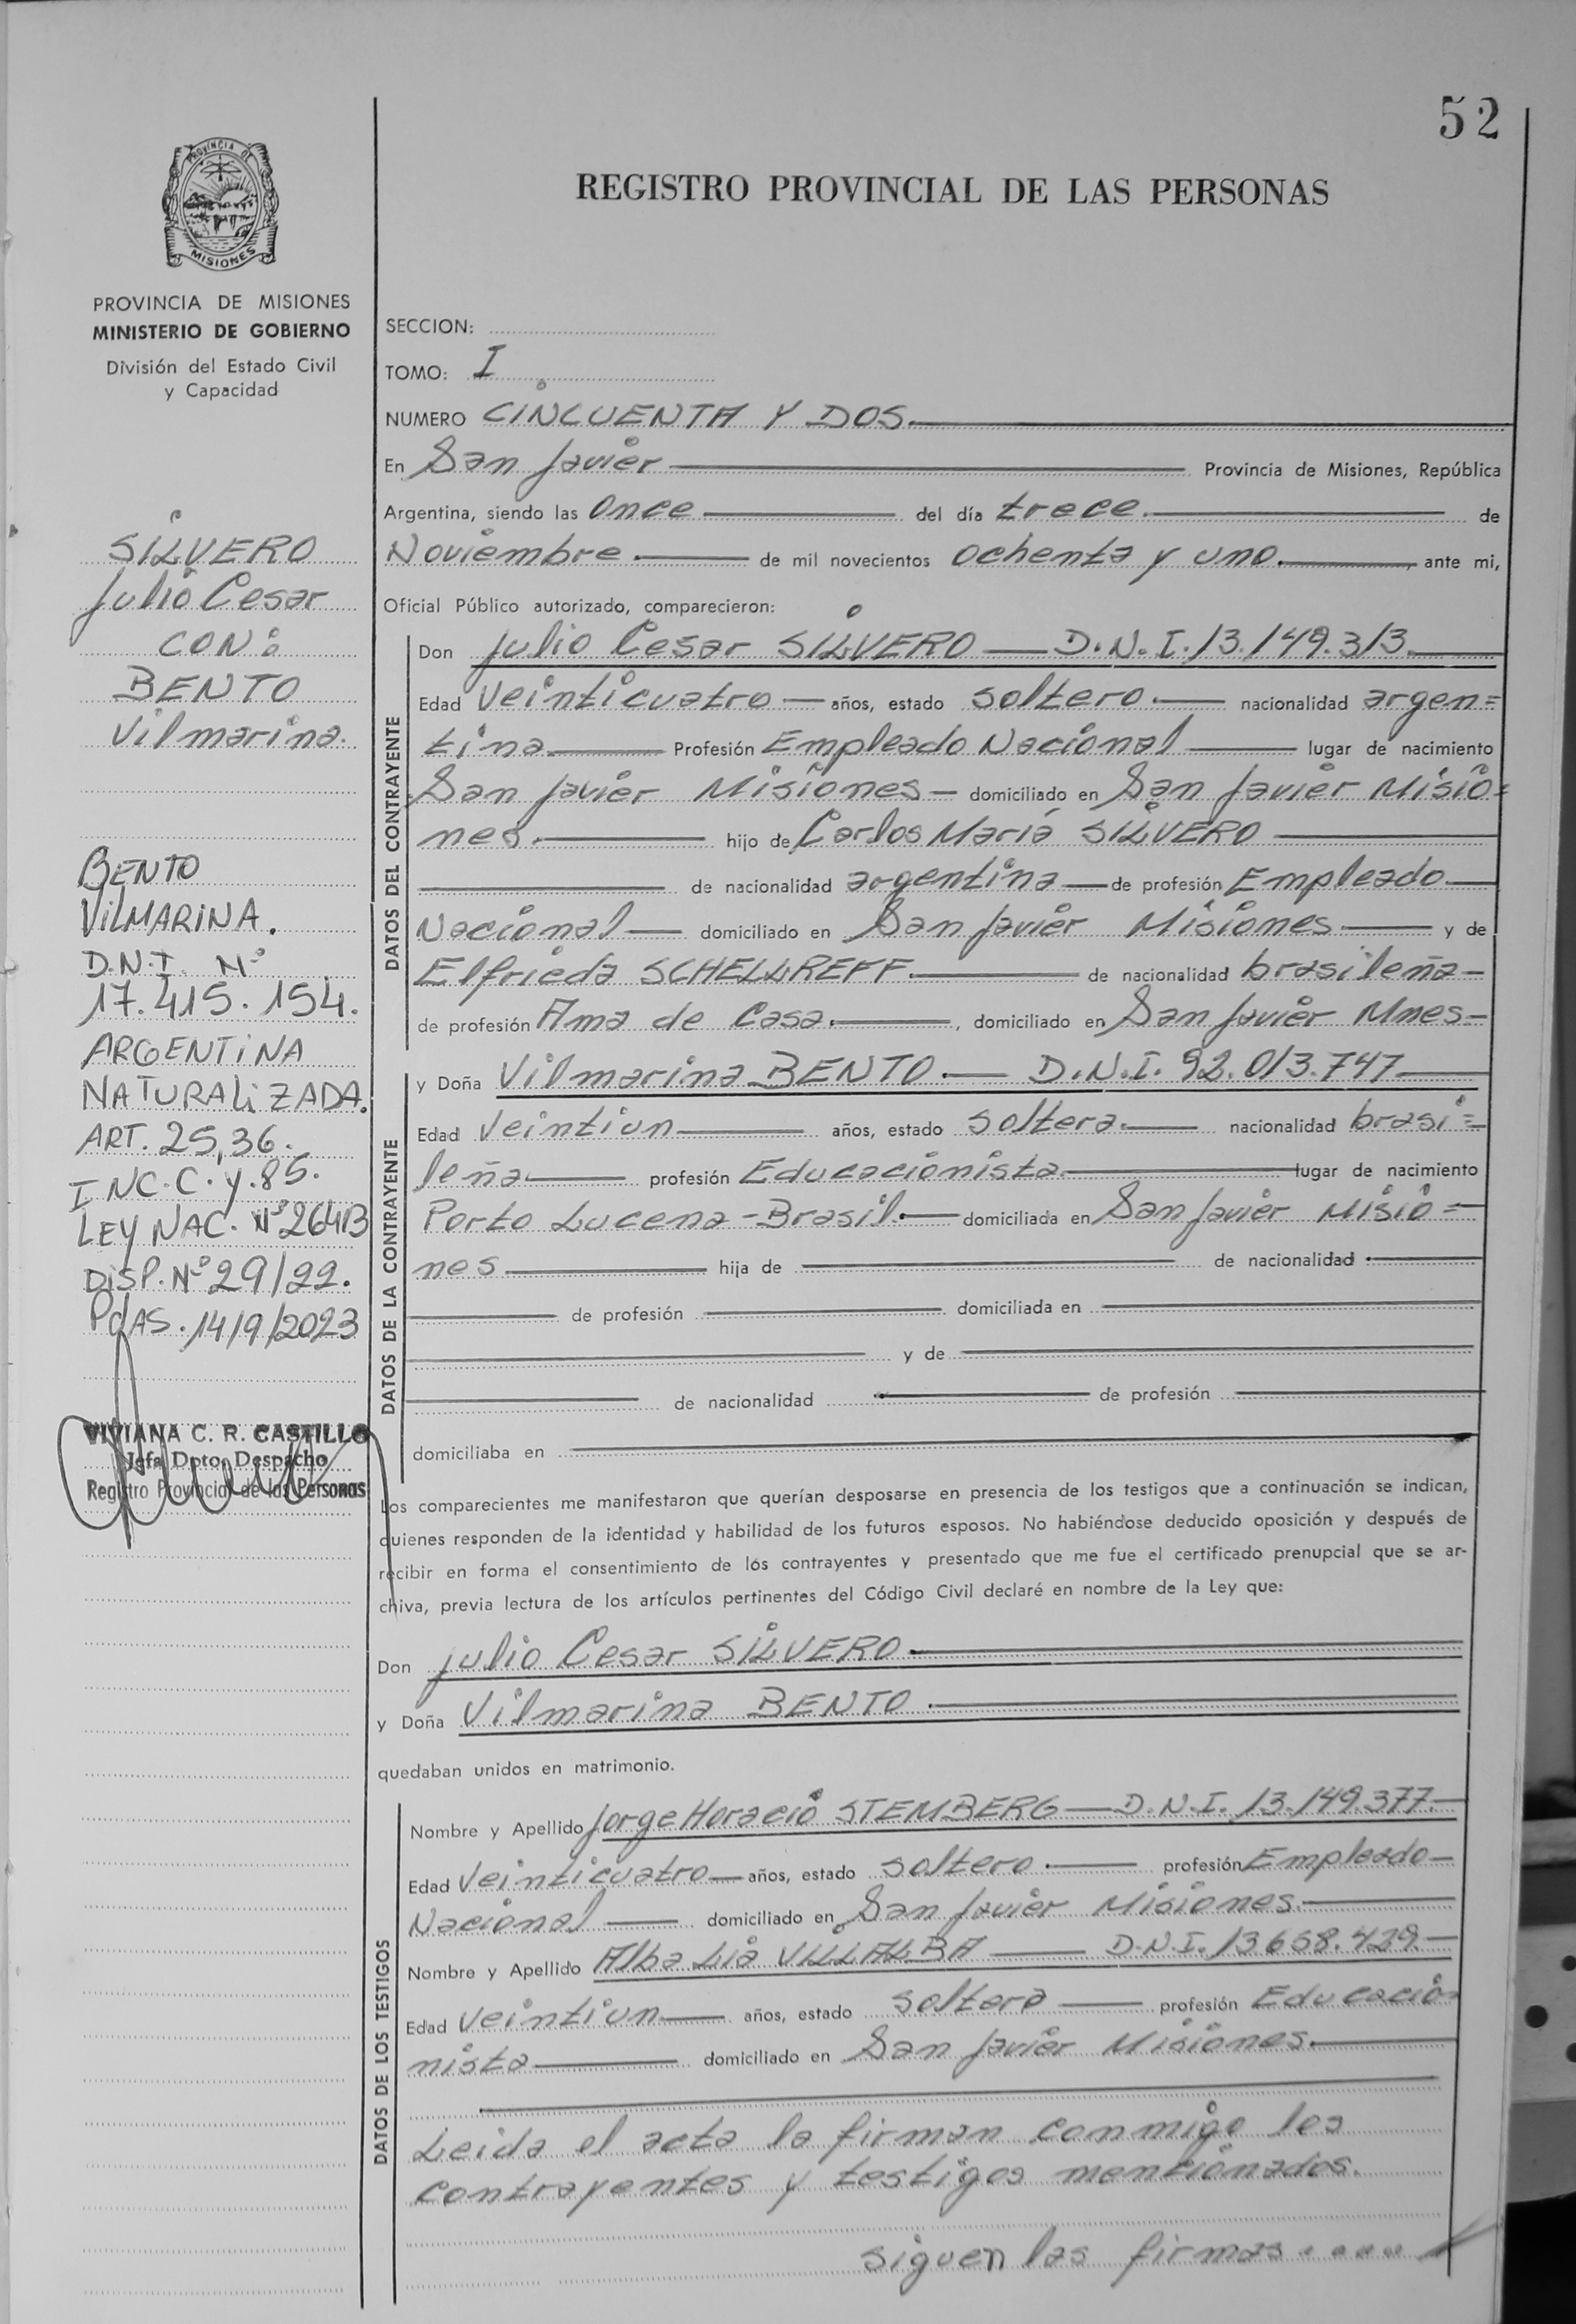 52
PROVINCIA DE
MISIONES
REGISTRO PROVINCIAL DE LAS PERSONAS
PROVINCIA DE MISIONES
MINISTERIO DE GOBIERNO
División del Estado Civil
y Capacidad
SILVERO
Julio Cesar
CON:
BENTO
Vilmarina.
BENTO
VILMARINA.
D.N.I. Nº
17.415.154.
ARGENTINA
NATURALIZADA.
ART. 25,36.
INC. C. y. 85.
LEY NAC. Nº 26413
DISP. Nº 29/22.
PdAS. 14/9/2023
VIVIANA C. R. CASTILLO
Jefa Dpto. Despacho
Registro Provincial de las Personas
SECCION:
TOMO: I
NUMERO CINCUENTA Y DOS.
En San Javier Provincia de Misiones, República
Argentina, siendo las Once del día trece. de
Noviembre. de mil novecientos ochenta y uno., ante mi,
Oficial Público autorizado, comparecieron:
DATOS DEL CONTRAYENTE
Don Julio Cesar SILVERO — D.N.I. 13.149.313.
Edad Veinticuatro — años, estado soltero. — nacionalidad argen=
tina Profesión Empleado Nacional lugar de nacimiento
San Javier Misiones — domiciliado en San Javier Misio=
nes. hijo de Carlos María SILVERO
de nacionalidad argentina — de profesión Empleado
Nacional — domiciliado en San Javier Misiones — y de
Elfrieda SCHELLREFF. de nacionalidad brasileña —
de profesión Ama de Casa., domiciliado en San Javier Mnes —
DATOS DE LA CONTRAYENTE
y Doña Vilmarina BENTO. — D.N.I. 92.013.747
Edad Veintiun años, estado soltera. nacionalidad brasi=
leña profesión Educacionista. lugar de nacimiento
Porto Lucena - Brasil. — domiciliada en San Javier Misio=
nes hija de de nacionalidad
de profesión domiciliada en
y de
de nacionalidad de profesión
domiciliaba en
Los comparecientes me manifestaron que querían desposarse en presencia de los testigos que a continuación se indican,
quienes responden de la identidad y habilidad de los futuros esposos. No habiéndose deducido oposición y después de
recibir en forma el consentimiento de los contrayentes y presentado que me fue el certificado prenupcial que se ar-
chiva, previa lectura de los artículos pertinentes del Código Civil declaré en nombre de la Ley que:
Don Julio Cesar SILVERO.
y Doña Vilmarina BENTO.
quedaban unidos en matrimonio.
DATOS DE LOS TESTIGOS
Nombre y Apellido Jorge Horacio STEMBERG — D.N.I. 13.149.377.
Edad Veinticuatro — años, estado soltero. profesión Empleado —
Nacional domiciliado en San Javier Misiones.
Nombre y Apellido Alba Lia VILLALBA — D.N.I. 13.658.429.
Edad Veintiun años, estado soltera profesión Educacio=
nista domiciliado en San Javier Misiones.
Leida el acta la firman conmigo los
contrayentes y testigos mencionados.
siguen las firmas....